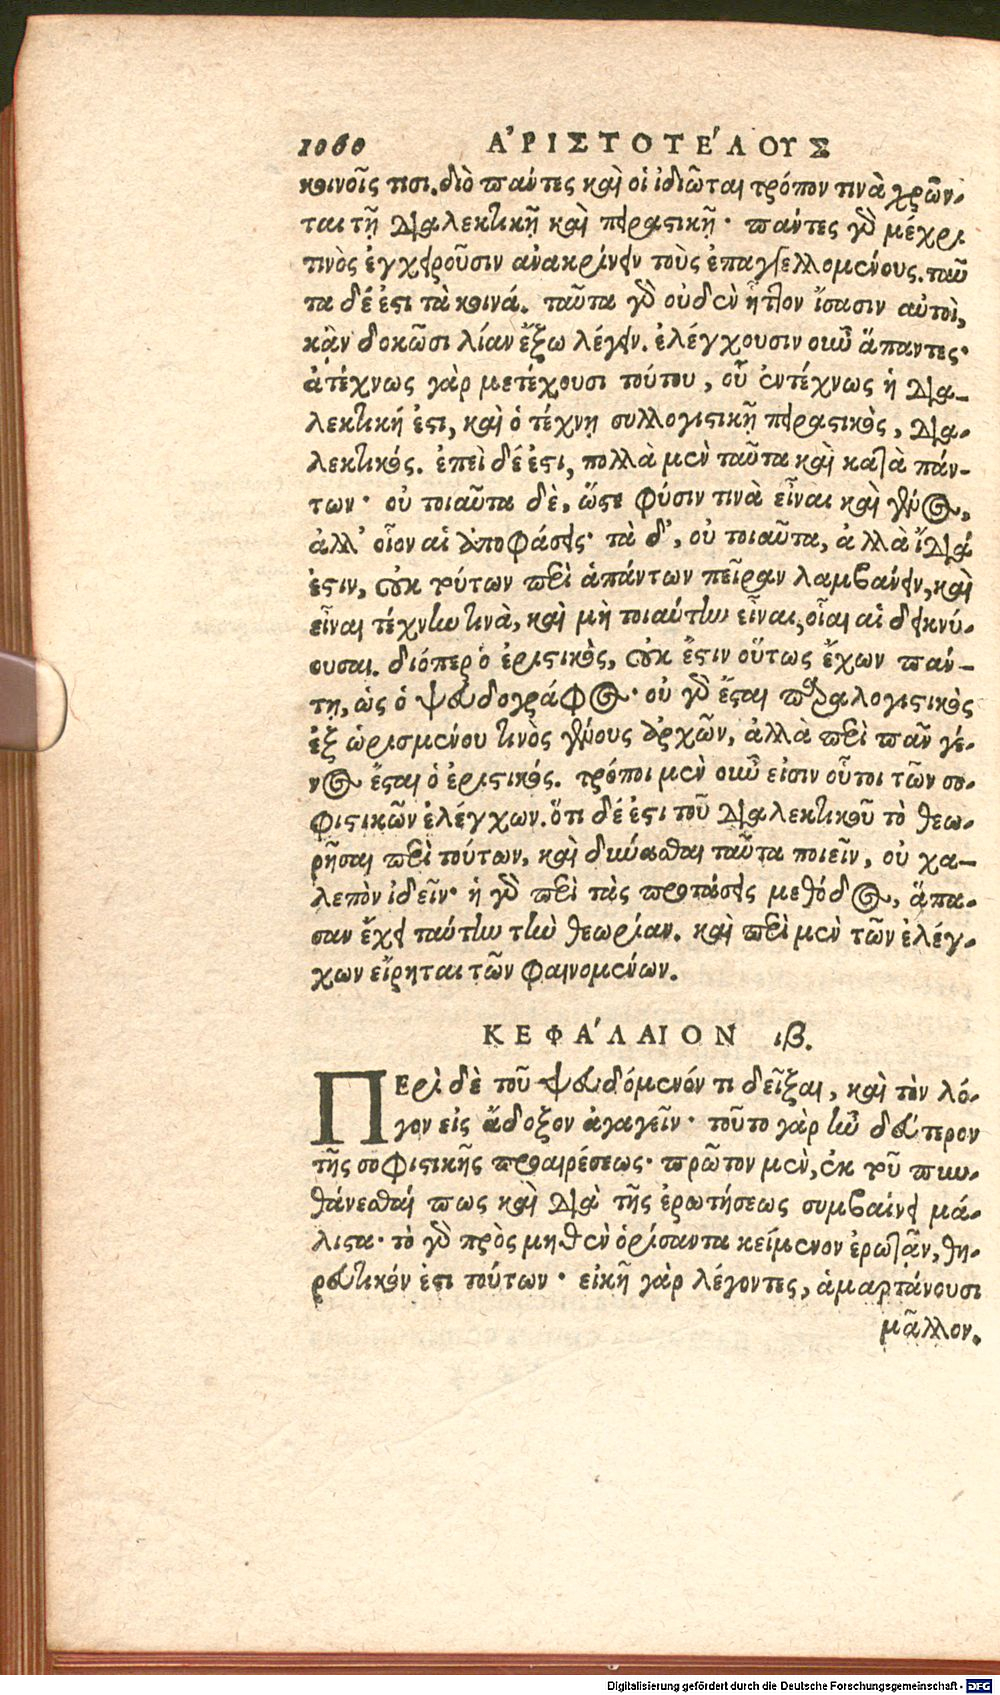 1060 ἈΡΙΣΤΟΤΈΛΟΥΣ
κοινοῖς τισι. διὸ πάντες καὶ οἱ ἰδιῶται τρόπον τινὰ χρῶν-
ται τῇ διαλεκτικῇ καὶ πειραστικῇ· πάντες γὰρ μέχρι
τινὸς ἐγχειροῦσιν ἀνακρίνειν τοὺς ἐπαγγελλομένους. ταῦ
τα δέ ἐστι τὰ κοινά. ταῦτα γὰρ οὐδὲν ἧττον ἴσασιν αὐτοὶ,
κἂν δοκῶσι λίαν ἔξω λέγειν. ἐλέγχουσιν οὖν ἅπαντες·
ἀτέχνως γὰρ μετέχουσι τούτου, οὗ ἐντέχνως ἡ δια-
λεκτική ἐστι, καὶ ὁ τέχνῃ συλλογιστικῇ πειραστικὸς, δια-
λεκτικός. ἐπεὶ δέ ἐστι, πολλὰ μὲν ταῦτα καὶ κατὰ πάν-
των· οὐ τοιαῦτα δὲ, ὥστε φύσιν τινὰ εἶναι καὶ γένος,
ἀλλ' οἷον αἱ ἀποφάσεις· τὰ δ', οὐ τοιαῦτα, ἀλλὰ ἴδιά
ἐστιν, οὐκ τούτων περὶ ἁπάντων πεῖραν λαμβάνειν, καὶ
εἶναι τέχνην τινὰ, καὶ μὴ τοιαύτην εἶναι, οἷαι αἱ δεικνύ-
ουσαι. διόπερ ὁ ἐριστικὸς, οὐκ ἔστιν οὕτως ἔχων πάν-
τῃ, ὡς ὁ ψευδογράφος· οὐ γὰρ ἔσται παραλογιστικὸς
ἐξ ὡρισμένου τινὸς γένους ἀρχῶν, ἀλλὰ περὶ πᾶν γέ-
νος ἔσται ὁ ἐριστικός. τρόποι μὲν οὖν εἰσιν οὗτοι τῶν σο-
φιστικῶν ἐλέγχων. ὅτι δέ ἐστι τοῦ διαλεκτικοῦ τὸ θεω-
ρῆσαι περὶ τούτων, καὶ δύνασθαι ταῦτα ποιεῖν, οὐ χα-
λεπὸν ἰδεῖν· ἡ γὰρ περὶ τὰς προτάσεις μέθοδος, ἅπα-
σαν ἔχει ταύτην τὴν θεωρίαν. καὶ περὶ μὲν τῶν ἐλέγ-
χων εἴρηται τῶν φαινομένων.
ΚΕΦΆΛΑΙΟΝ ιβ.
ΠΕρὶ δὲ τοῦ ψευδόμενόν τι δεῖξαι, καὶ τὸν λό-
γον εἰς ἄδοξον ἀγαγεῖν· τοῦτο γὰρ ἦν δεύτερον
τῆς σοφιστικῆς προαιρέσεως· πρῶτον μὲν, ἐκ τοῦ πυν-
θάνεσθαί πως καὶ διὰ τῆς ἐρωτήσεως συμβαίνει μά-
λιστα· τὸ γὰρ πρὸς μηθὲν ὁρίσαντα κείμενον ἐρωτᾶν, θη-
ρευτικόν ἐστι τούτων· εἰκῆ γὰρ λέγοντες, ἁμαρτάνουσι
μᾶλλον.
Digitalisierung gefördert durch die Deutsche Forschungsgemeinschaft - DFG